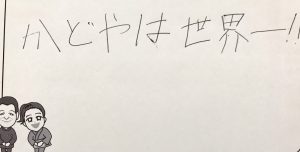 かどやは世界一!!